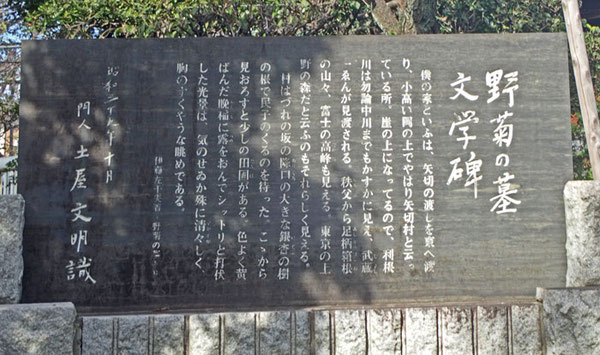 野菊の墓
文学碑
僕の家といふは、矢切の渡しを東へ渡
り、小高い岡の上でやはり矢切村と云っ
ている所。崖の上になってるので、利根
川は勿論中川までもかすかに見え、武蔵
一ゑんが見渡される。秩父から足柄箱根
の山々、富士の高峰も見える。東京の上
野の森だと云ふのもそれらしく見える。
村はづれの坂の降口の大きな銀杏の樹
の根で民子のくるのを待った。こゝから
見おろすと少しの田圃がある。色よく黄
ばんだ晩稲に露をおんでシットリと打伏
した光景は、気のせゐか殊に清々しく、
胸のすくやうな眺めである。
伊藤左千夫著 野菊の
昭和 年十月
門人 土屋文明識